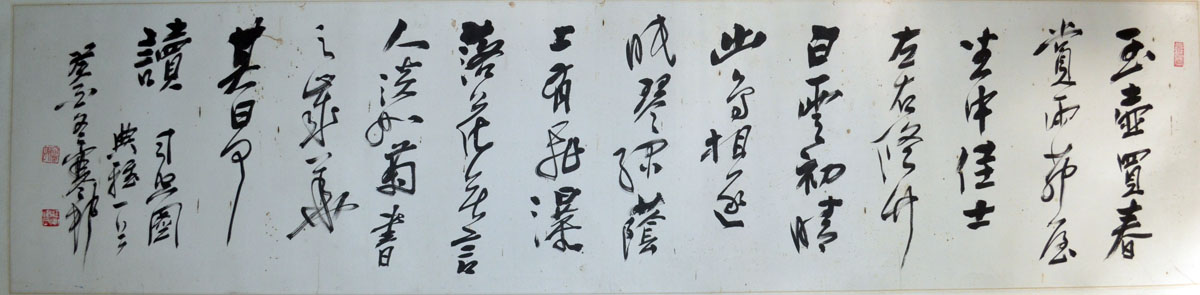 玉壺買春
賞雨茆屋
坐中佳士
左右修竹
白雲初晴
幽鳥相逐
眠琴綠蔭
上有飛瀑
落花無言
人淡如菊書
之歲華
其曰可
讀 司空圖
典雅一品